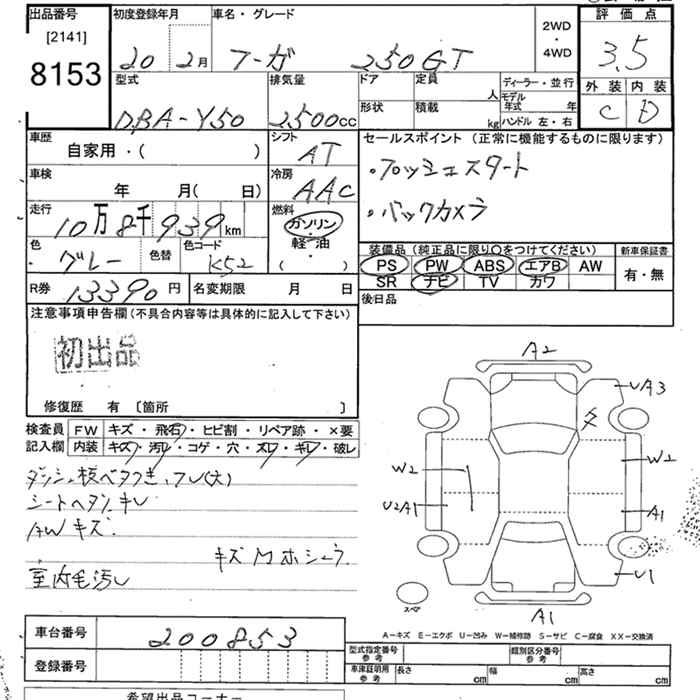 出品番号
[2141]
8153
初度登録年月
20 2月
車名・グレード
フーガ 250GT
2WD
・
4WD
評価点
3.5
外装 内装
C D
型式
DBA-Y50
排気量
2500cc
ドア
形状
定員
人
積載
kg
ディーラー・並行
モデル年式 年
ハンドル 左・右
車歴
自家用・( )
シフト
AT
車検
年 月( 日)
冷房
AAC
走行
10万8千939km
燃料
ガソリン
・
軽油
( )
色
グレー
色替
色コード
K52
R券 13390円
名変期限 月 日
セールスポイント(正常に機能するものに限ります)
・プッシュスタート
・バックカメラ
装備品(純正品に限り○をつけてください)
PS PW ABS エアB AW
SR ナビ TV カワ
新車保証書
有・無
後日品
注意事項申告欄(不具合内容等は具体的に記入して下さい)
初出品
修復歴 有 〔箇所 〕
検査員記入欄
FW キズ・飛石・ヒビ割・リペア跡・×要
内装 キズ・汚レ・コゲ・穴・スレ・キレ・破レ
シートヘタリ、キレ
A/Wキズ
室内毛汚レ
A2
UA3
W2
W2
U2A1
A1
U1
A1
スペア
A-キズ E-エクボ U-凹み W-補修跡 S-サビ C-腐食 XX-交換済
車台番号
200853
登録番号
型式指定番号
参考
類別区分番号
参考
車庫証明用
参考
長さ cm
幅 cm
高さ cm
希望出品コーナー